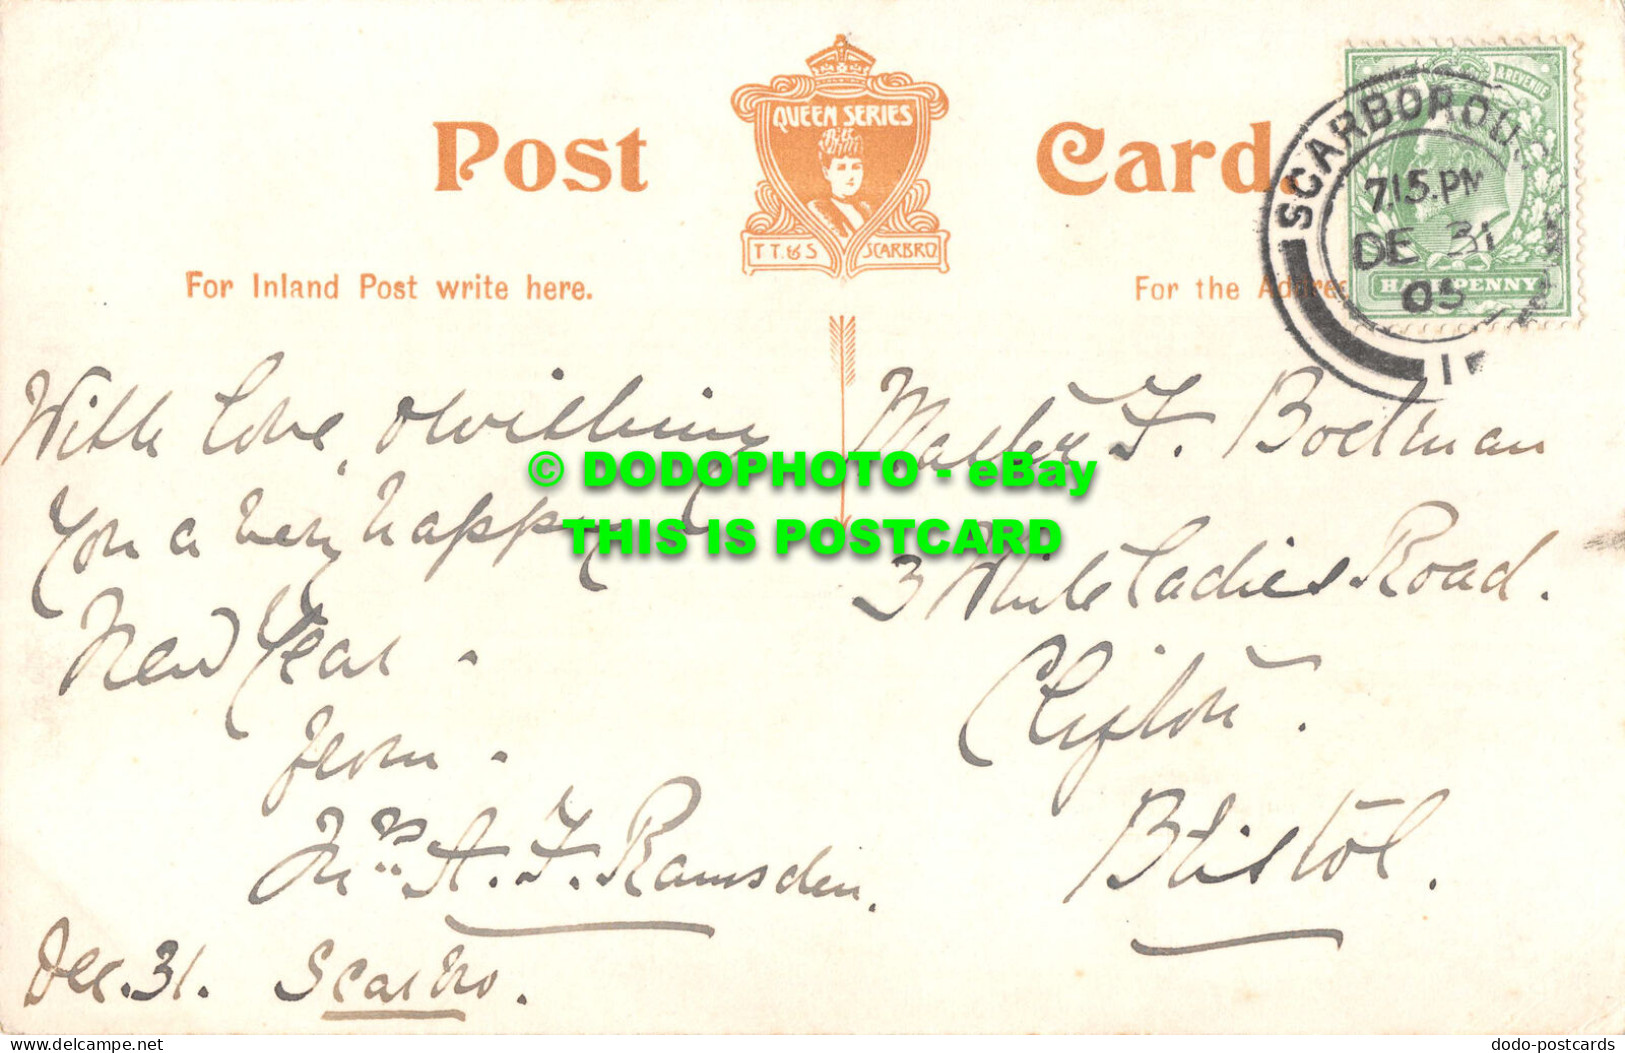 Post Card.
QUEEN SERIES
T T. & S SCARBRO.
For Inland Post write here.
For the Addres
& REVENUE
HALFPENNY
SCARBOROU
7.15.PM
DE 31
05
1
With Love, & wishing
you a very happy
New Year -
from -
Mrs A. F. Ramsden.
Dec. 31. Scarbro.
Master F. Boetman
3 White Ladies Road.
Clifton.
Bristol.
© DODOPHOTO - eBay
THIS IS POSTCARD
http://www.delcampe.net
dodo-postcards